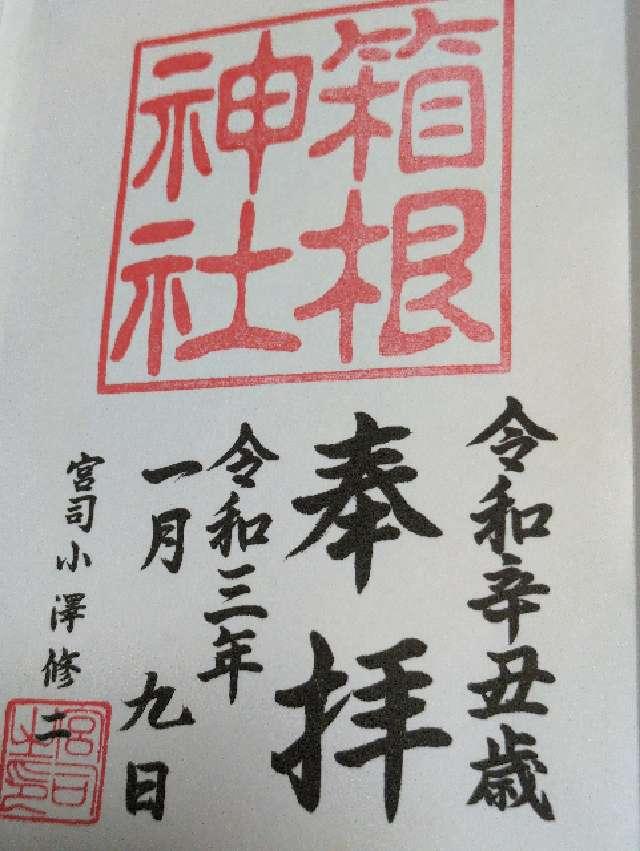 箱根
神社
令和辛丑歳
奉拝
令和三年
一月九日
宮司小澤修二
宮司之印